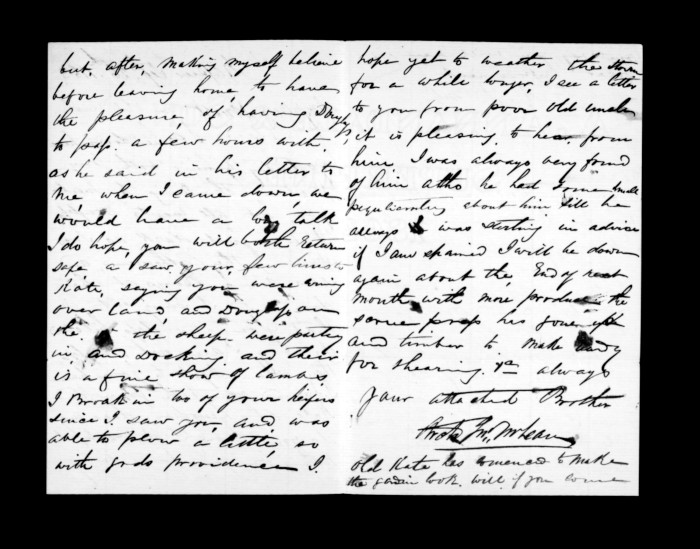 but, after, making myself believe
before leaving home, to have
the pleasure, of having Dougls
to pass a few hours with,
as he said in his letter to
me, when I came down, we
would have a big talk
I do hope, you will both return
safe, a saw your, few lines to
Kate, saying you were going
over land, and Douglas on
the the sheep were party
in and Docking and their
is a fine show of lambs
I Broak in two of your heifers
since I saw you, and was
able to plow a little so
with gods providence I.
hope yet to weather the storm
for a while longer, I see a letter
to you from poor old uncle
it is pleasing to hear from
him, I was always very found
of him altho he had some small
peguliarity about him still he
allways was sterling in advise
if I am spaired I will be down
again about the End of next
month with more produce, the
screw press has
and timber to make ready
for shearing. yrs always
your attached Brother
Archd Jn. McLean
old Kate has comenced to make
the garden look well if you come